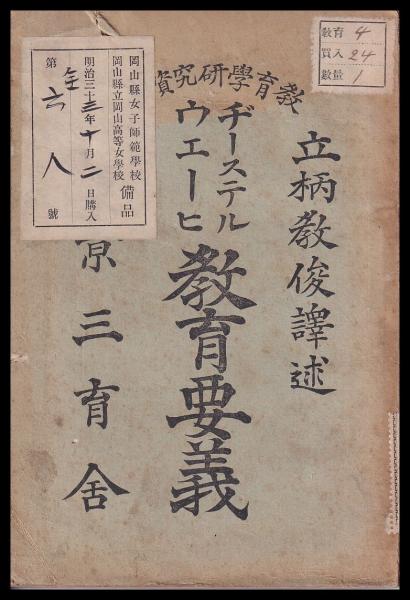 教育學研究資
立柄教俊譯述
ヂーステル
ウエーヒ
教育要義
京三育舍
岡山縣女子師範學校
岡山縣立岡山高等女學校
備品
明治三十三年十月二日購入
第
六八
號
教育 4
買入 24
數量 1